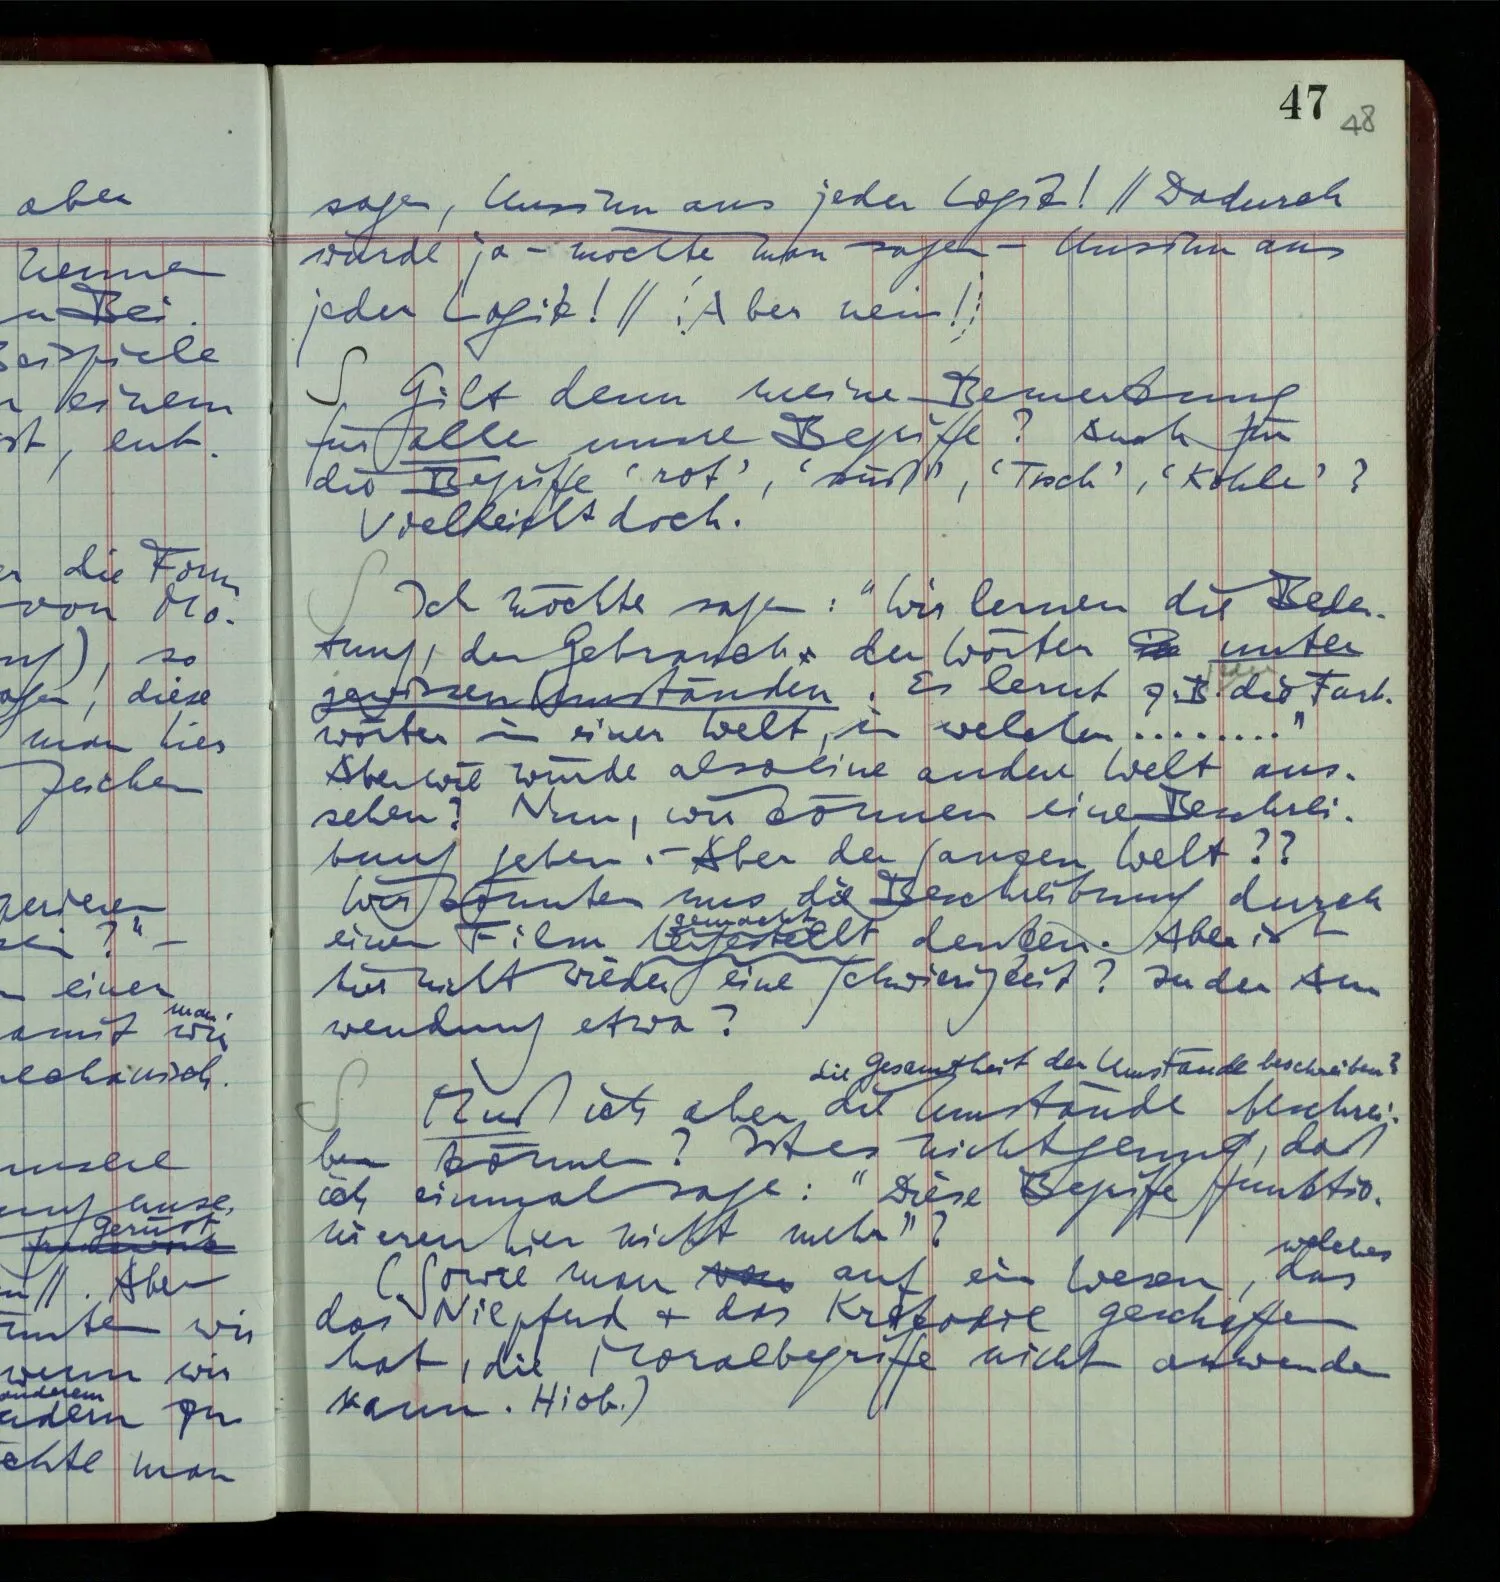 47
48
aber
sagen, Unsinn aus jeder Logik! // Dadurch
würde ja – möchte man sagen – Unsinn aus
jeder Logik! // Aber nein!
nenne
Bei.
Beispiele
einem
ist, ent.
S Gilt denn meine Bemerkung
für alle unsre Begriffe? Auch für
die Begriffe ‘rot’, ‘süß’, ‘Tisch’, ‘Kohle’?
Vielleicht doch.
die Form
von Mo.
, so
, diese
man hier
S Ich möchte sagen: “Wir lernen die Bedeu-
tung, den Gebrauch, der Wörter unter
gewissen Umständen. Es lernt z.B. jeder die Farb-
wörter in einer Welt, in welcher ........”
Aber wie würde also eine andere Welt aus-
sehen? Nun, wir können eine Beschrei-
bung geben. – Aber der ganzen Welt??
Wir könnten uns die Beschreibung durch
einen Film hergestellt gemacht denken. Aber ist
hier nicht wieder eine Schwierigkeit? In der An
wendung etwa?
sei?” –
einen
damit wir man
mechanisch.
S Muß ich aber die Umstände die Gesamtheit der Umstände beschreiben? beschrei-
ben können? Ist es nicht genug, daß
ich einmal sage: “Diese Begriffe funktio-
nieren hier nicht mehr”?
(Sowie man auf ein Wesen, das welches
das Nilpferd + das Krokodil geschaffen
hat, die Moralbegriffe nicht anwenden
kann. Hiob.)
unsere
Gerüst
//. Aber
wir
wenn wir
anderem
zu
möchte man